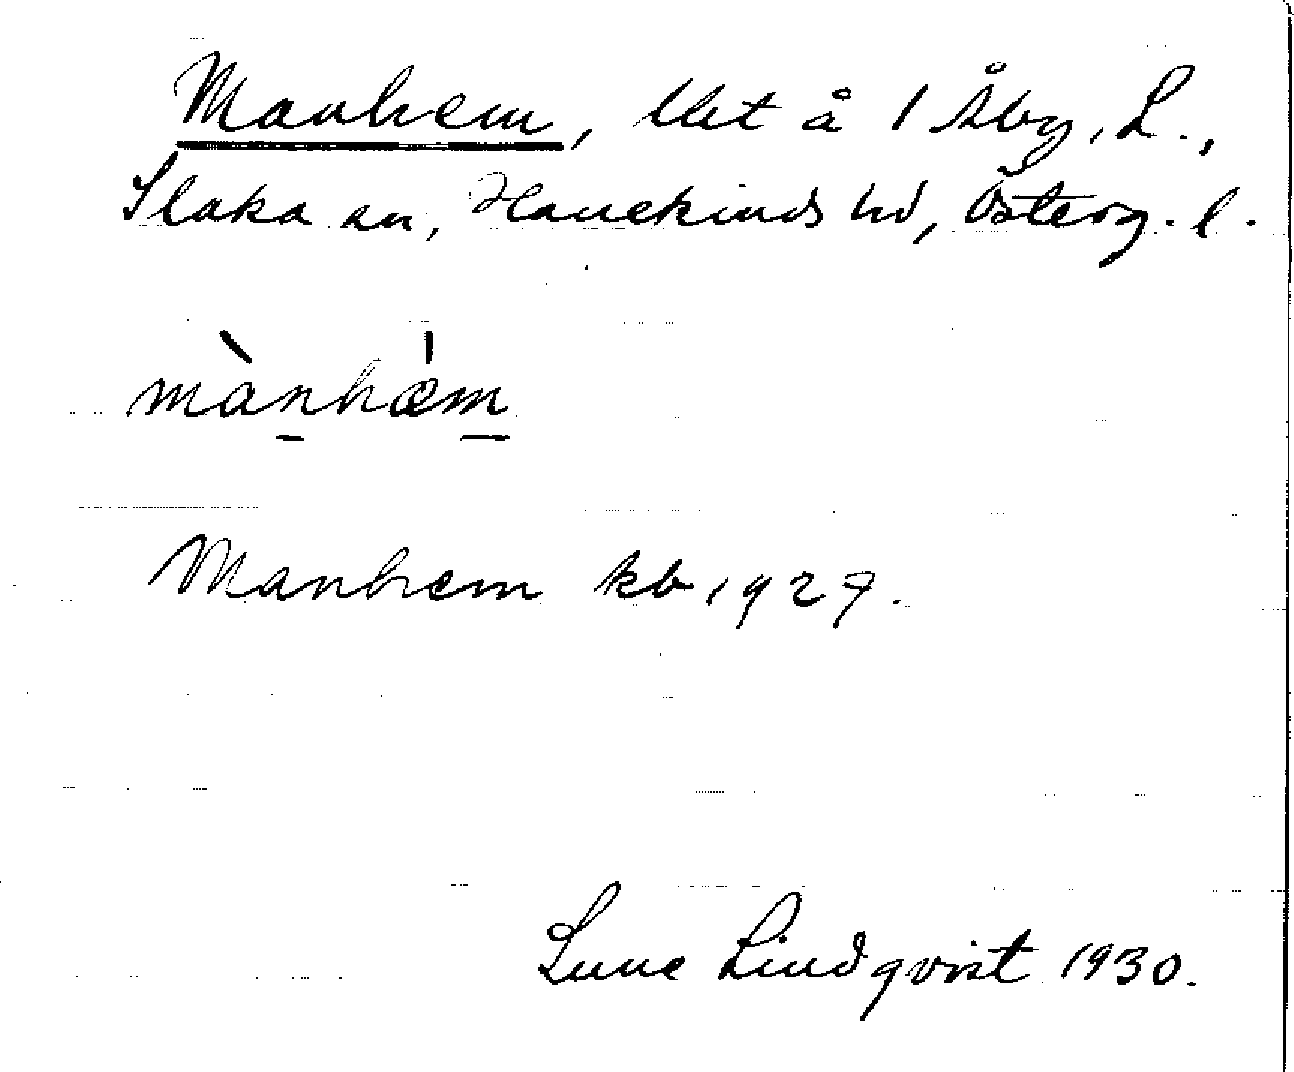 Manhem, lht å 1 Åby, L.,
Slaka sn, Hanekinds hd, Österg. l.
mànhæ̀m
Manhem kb 1927.
Sune Lindqvist 1930.